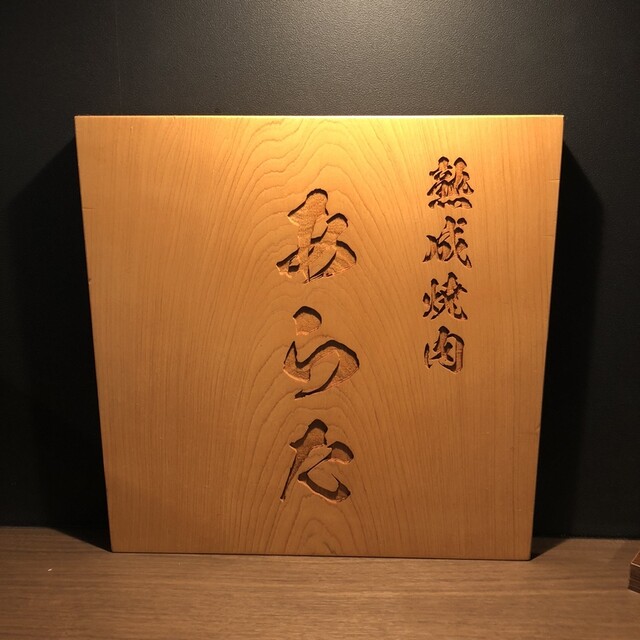 熟成焼肉
あらた